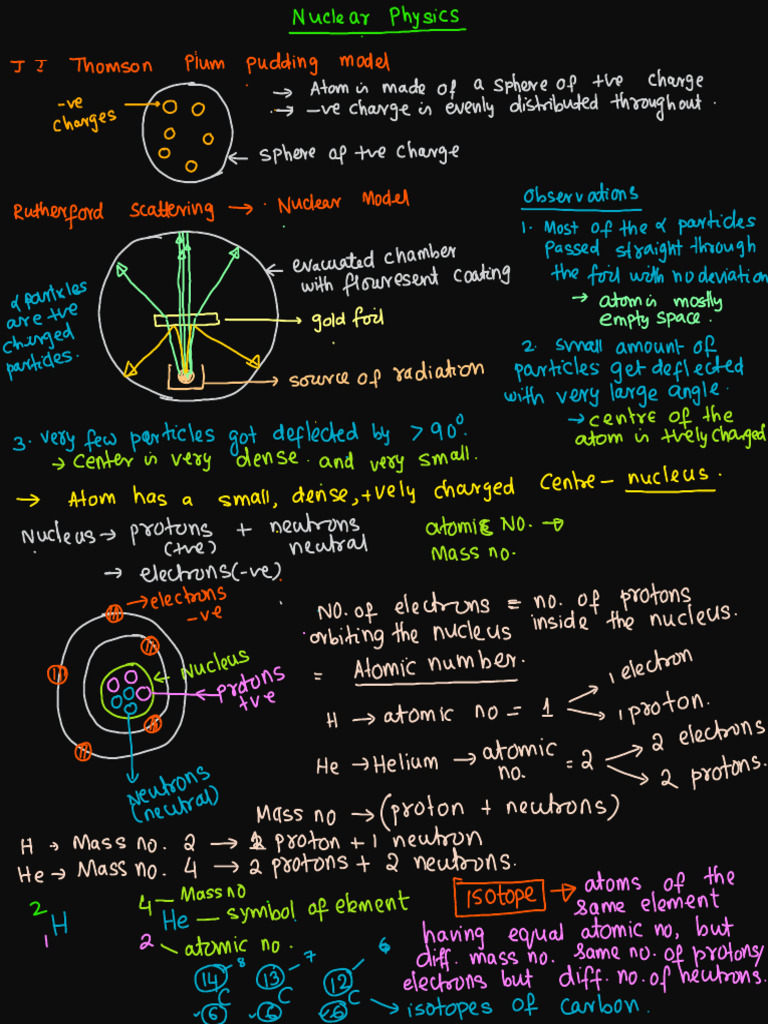 Nuclear Physics
J J Thomson Plum pudding model
-ve charges
→ Atom is made of a sphere of +ve charge
→ -ve charge is evenly distributed throughout.
sphere of +ve charge
Rutherford scattering → Nuclear Model
α particles
are +ve
charged
particles.
evacuated chamber
with flouresent coating
gold foil
source of radiation
Observations
1. Most of the α particles
passed straight through
the foil with no deviation
→ atom is mostly
empty space.
2. small amount of
particles get deflected
with very large angle.
→ centre of the
atom is +vely charged
3. very few particles got deflected by > 90°.
→ Center is very dense and very small.
→ Atom has a small, dense, +vely charged Centre - nucleus.
Nucleus → protons + neutrons
(+ve) neutral
→ electrons (-ve)
atomic NO. →
Mass no.
→ electrons
-ve
Nucleus
protons
+ve
Neutrons
(neutral)
NO. of electrons = no. of protons
orbiting the nucleus inside the nucleus.
= Atomic number.
H → atomic no = 1
1 electron
1 proton.
He → Helium → atomic no. = 2
2 electrons
2 protons.
Mass no → (proton + neutrons)
H → Mass no. 2 → 1 proton + 1 neutron
He → Mass no. 4 → 2 protons + 2 neutrons.
2
H
1
4 - Mass no
He - symbol of element
2 - atomic no.
Isotope → atoms of the
same element
having equal atomic no, but
diff. mass no. same no. of protons/
electrons but diff. no. of neutrons.
14 8
C
6
13 7
C
6
12 6
C
6
→ isotopes of carbon.